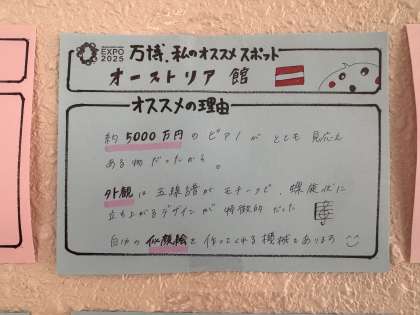 EXPO
2025
万博、私のオススメスポット
オーストリア館
オススメの理由
約5000万円のピアノがとても見応え
ある物だったから。
外観は五線譜がモチーフで、螺旋状に
立ち上がるデザインが特徴的だった
自分の似顔絵を作ってくれる機械もあります